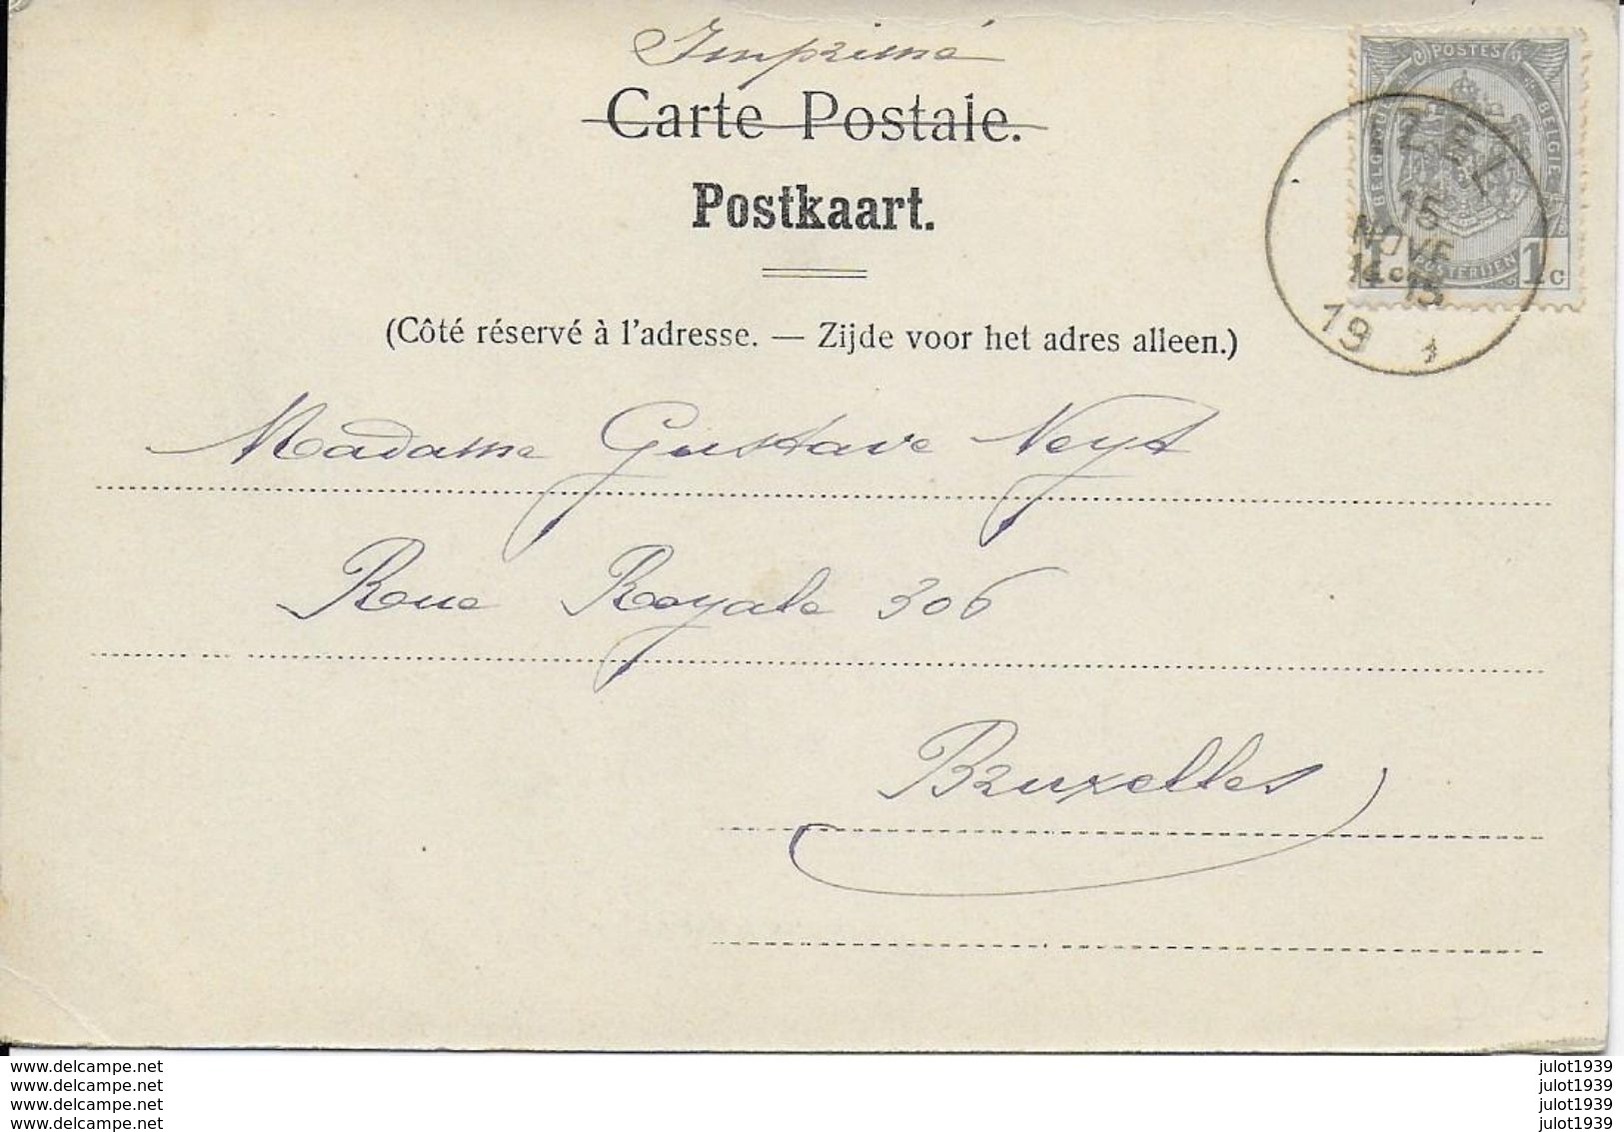 Imprimé
Carte Postale.
Postkaart.
(Côté réservé à l'adresse. — Zijde voor het adres alleen.)
POSTES
BELGIQUE
BELGIE
POSTERIJEN
1c 1c
ZEL
15
NOVE
19
Madame Gustave Neyt
Rue Royale 306
Bruxelles
www.delcampe.net julot1939
www.delcampe.net julot1939
www.delcampe.net julot1939
www.delcampe.net julot1939